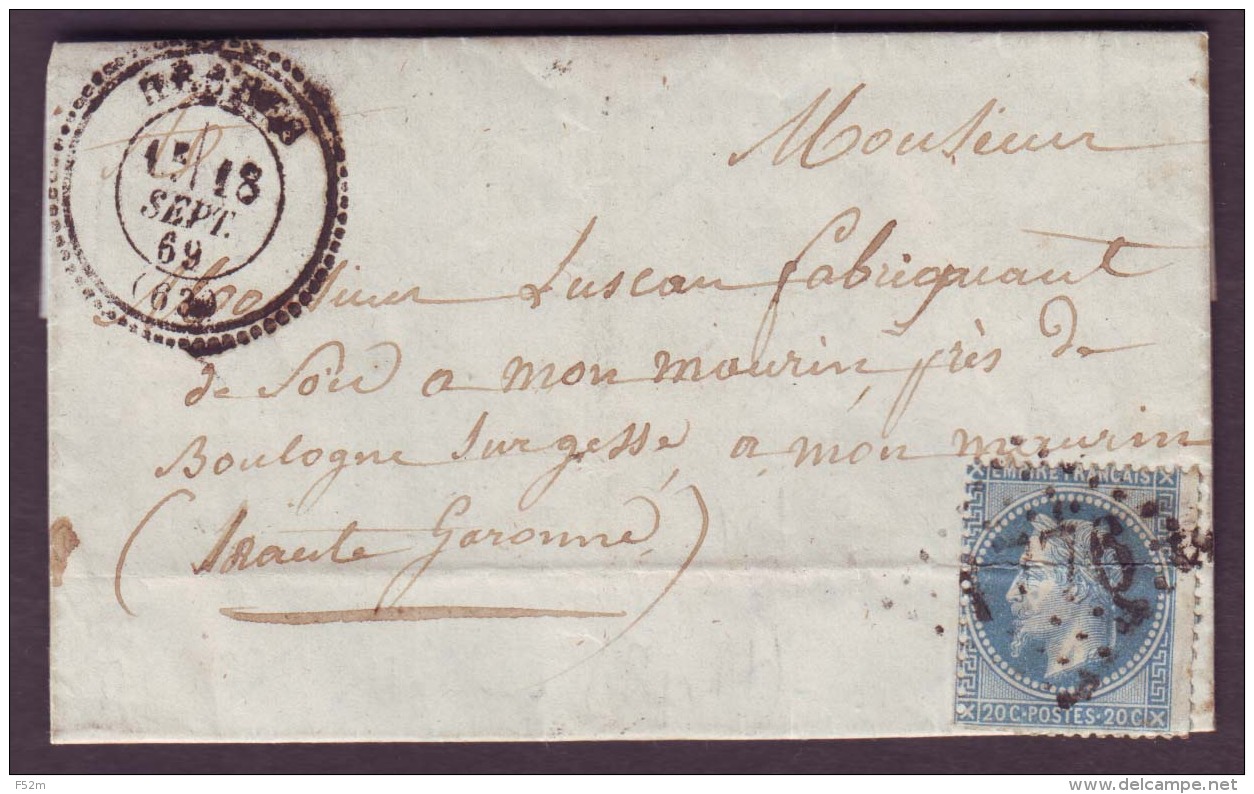 18
SEPT.
69
(63)
Monsieur
Monsieur Luscan fabriquant
de Soie a mon maurin, près de
Boulogne Surgesse, a mon maurin
(Haute Garonne)
EMPIRE FRANÇAIS
20C·POSTES·20C
F52m
delcampe.net